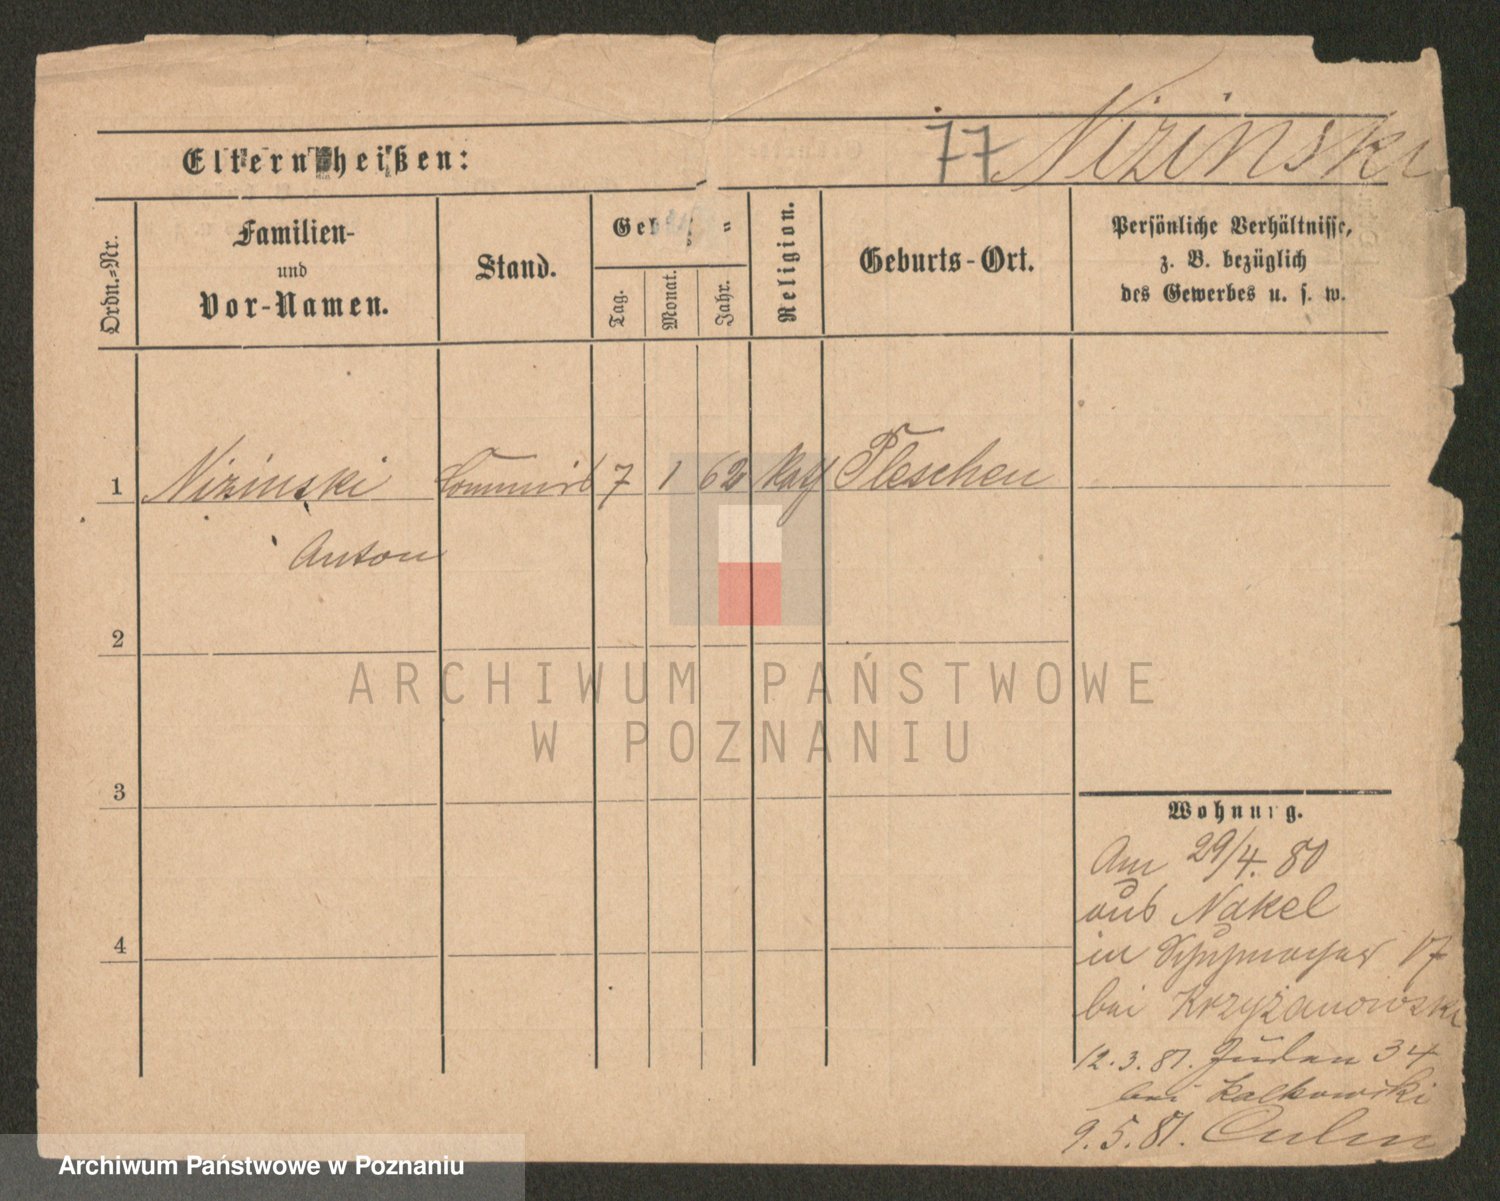 77 Nizinski
Eltern heißen:
Ordn.=Nr.
Familien-
und
Vor-Namen.
Stand.
Geb
Tag.
Monat.
Jahr.
Religion.
Geburts-Ort.
Persönliche Verhältnisse,
z. B. bezüglich
des Gewerbes u. s. w.
1 Nizinski Commis 7 1 62 kath Pleschen
Anton
2
3
4
ARCHIWUM PAŃSTWOWE
W POZNANIU
Wohnung.
Am 29/4. 80
aus Nakel
in Schuhmacher 17
bei Krzyżanowski
12.3.81. Juden 34
bei Kalkowski
9.5.81. Culm
Archiwum Państwowe w Poznaniu